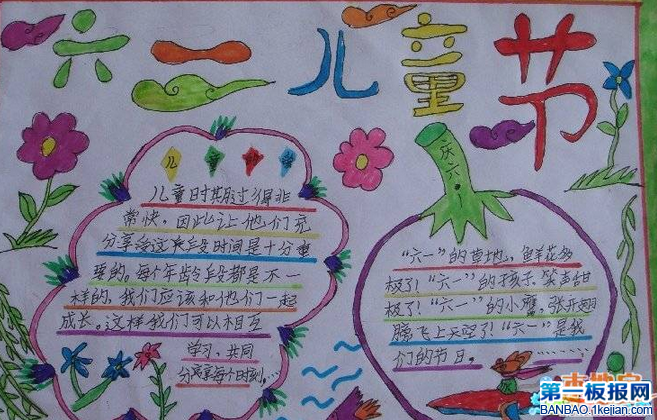 六一儿童节
儿童时期过得非
常快，因此让他们充
分享受这段时间是十分重
要的。每个年龄段都是不一
样的，我们应该和他们一起
成长。这样我们可以相互
学习，共同
分享每个时刻。…
庆六一
“六一”的草地，鲜花多
极了！“六一”的孩子，笑声甜
极了！“六一”的小鹰，张开翅
膀飞上天空了！“六一”是我
们的节日。…………
第一板报网
BANBAO.1kejian.com